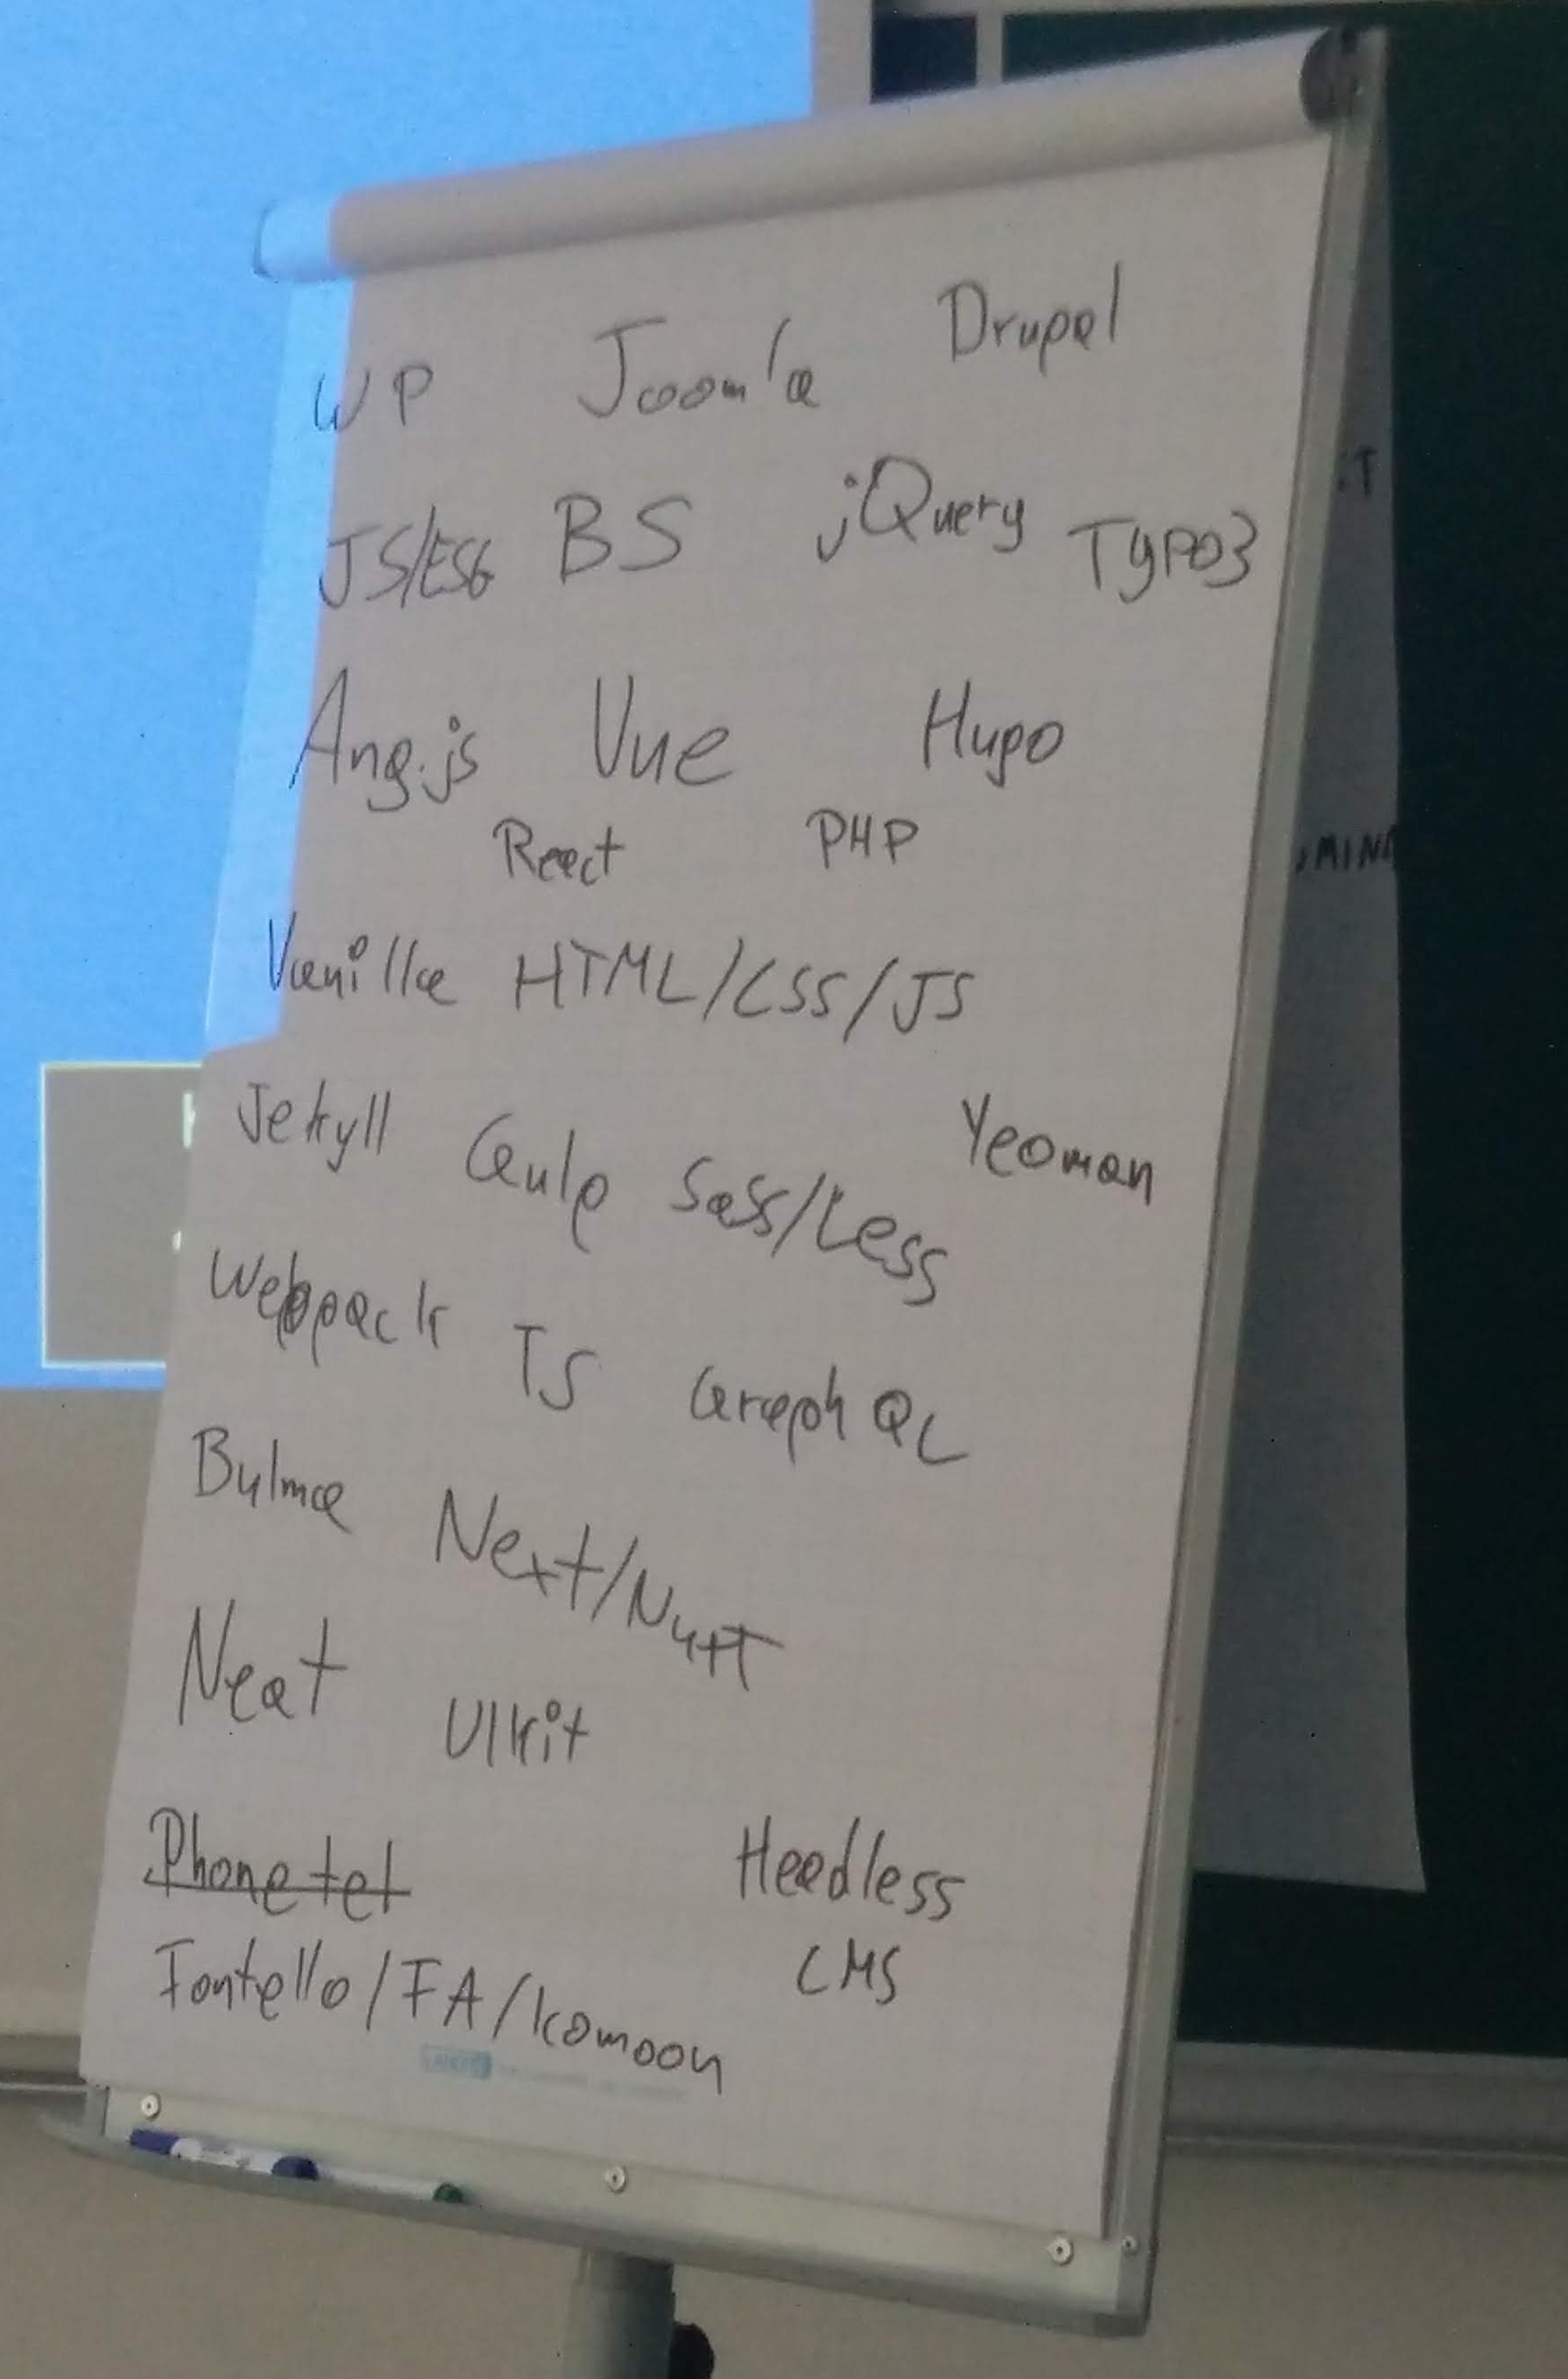 WP Joomla Drupal
JS/ES6 BS jQuery TYPO3
Ang.js Vue Hugo
React PHP
Vanilla HTML/CSS/JS
Jekyll Gulp Sass/Less Yeoman
Webpack TS GraphQL
Bulma Next/Nuxt
Neat UIkit
Headless
Fontello/FA/Icomoon CMS